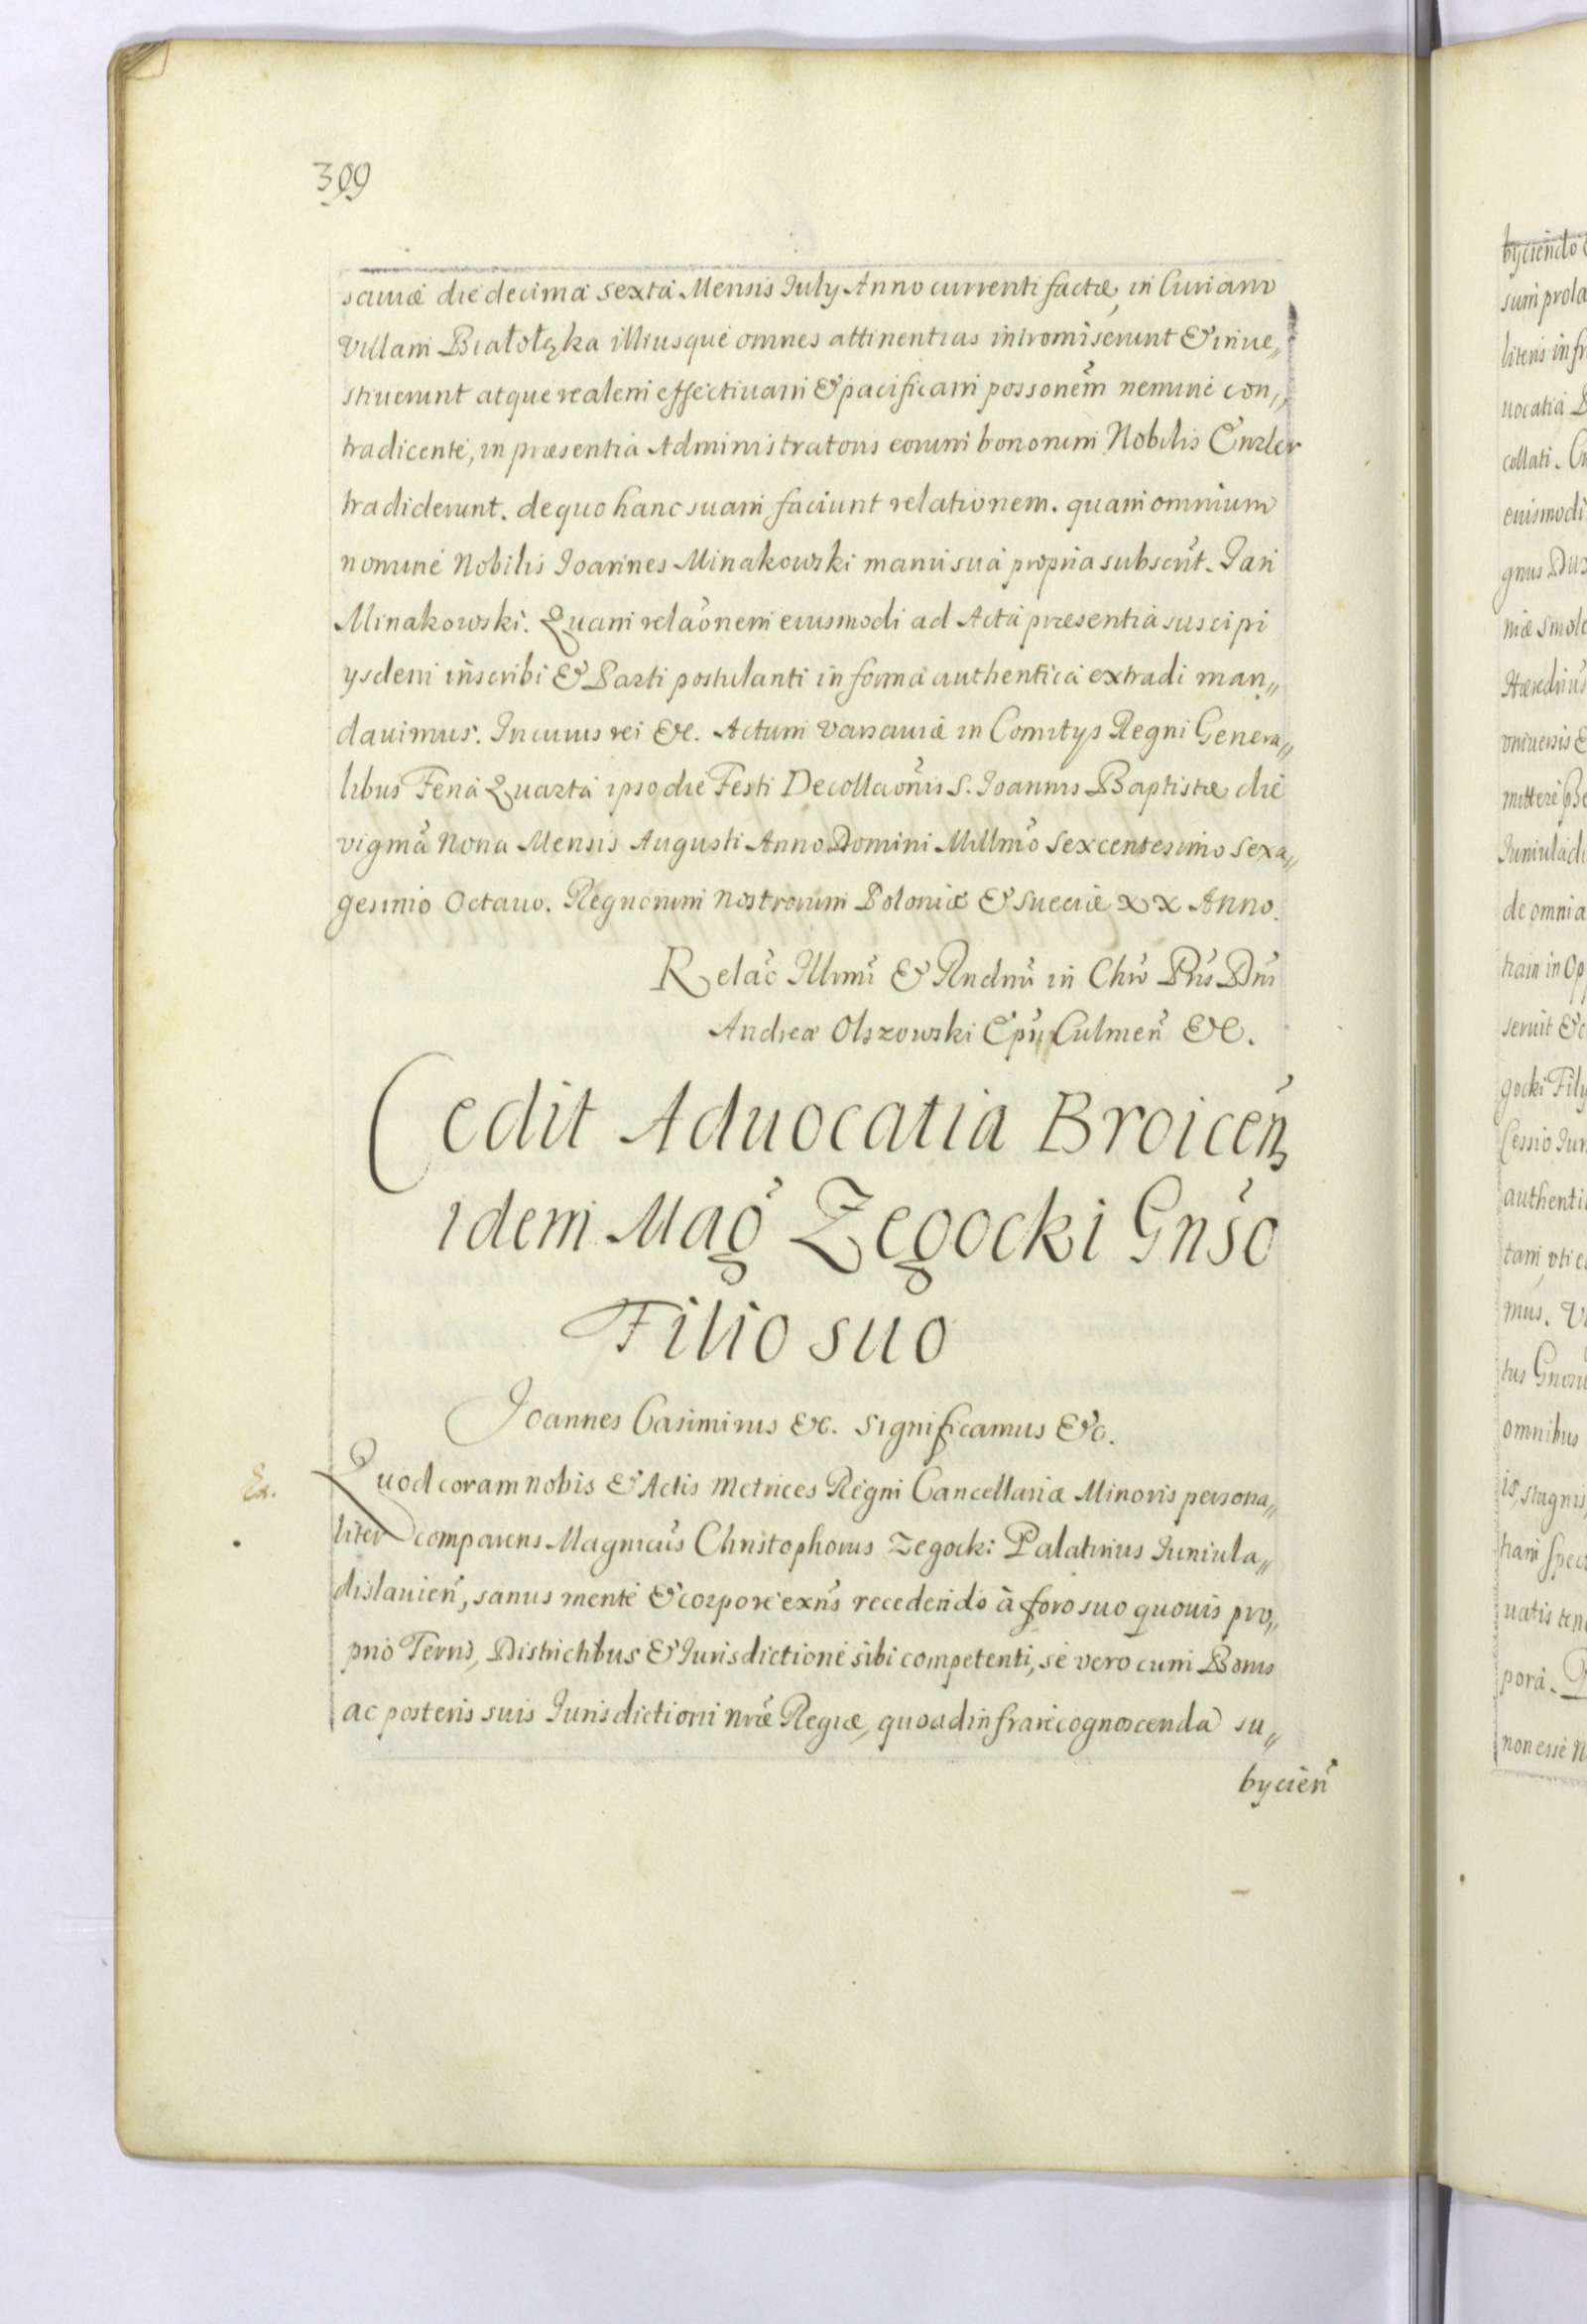 399
sauiæ die decima sexta Mensis July Anno currenti factæ, in Curiam
Villam Białołęka illiusque omnes attinentias intromiserunt & inue„
stiuerunt atque realem effectiuam & pacificam possonem nemine con„
tradicente, in præsentia Administratoris eorum bonorum Nobilis Enzler
tradiderunt. de quo hanc suam faciunt relationem. quam omnium
nomine Nobilis Joannes Minakowski manu sua propria subscrit. Jan
Minakowski. Quam relaonem eiusmodi ad Acta præsentia suscipi
ysdem inscribi & Parti postulanti in forma authentica extradi man„
dauimus. In cuius rei &c. Actum Varsauiæ in Comitys Regni Genera„
libus Feria Quarta ipso die Festi Decollaonis S. Joannis Baptistæ die
vigma Nona Mensis Augusti Anno Domini Millmo Sexcentesimo Sexa„
gesimo Octauo. Regnorum nostrorum Poloniæ & Sueciæ XX Anno.
Relao Illmi & Rndmi in Chro Pris Dni
Andreæ Olszowski Epi Culmen &c.
Cedit Aduocatia Broicen
idem Mag Zegocki Gnso
Filio suo
Joannes Casimirus &c. Significamus &c.
Ex.
Quod coram nobis & Actis Metrices Regni Cancellariæ Minoris persona„
liter comparens Magnicus Christophorus Zegocki Palatinus Juniula„
dislauien, sanus mente & corpore exns recedendo à foro suo quouis pro„
prio Terris, Districtibus & Jurisdictione sibi competenti, se vero cum Bonis
ac posteris suis Jurisdictioni nræ Regiæ, quoad infra recognoscenda su„
bycien